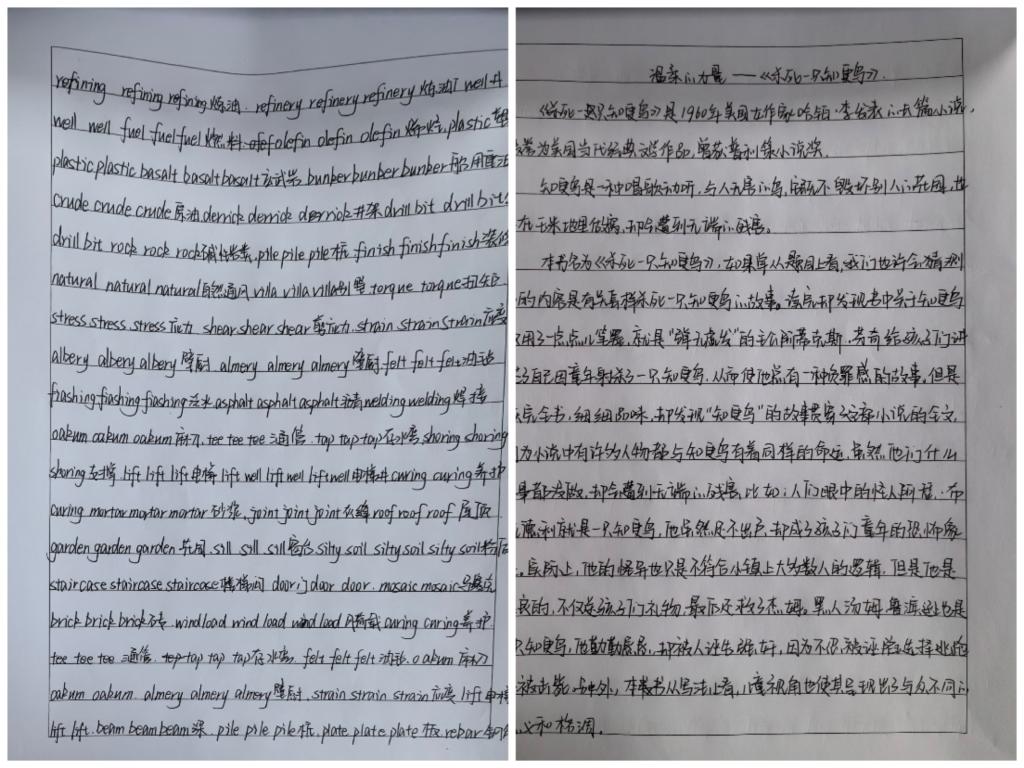 refining refining refining 炼油. refinery refinery refinery 炼油厂 well 井
well well fuel fuel fuel 燃料 olefin olefin olefin 烯烃, plastic
plastic plastic basalt basalt basalt 玄武岩 bunker bunker bunker 船用重油
crude crude crude 原油 derrick derrick derrick 井架 drill bit drill bit
drill bit rock rock rock pile pile pile 桩 finish finish finish 装修
natural natural natural 自然通风 villa villa villa 别墅 torque torque 扭矩
stress stress stress 应力 shear shear shear 剪应力 strain strain strain 应变
albery albery albery 壁厨 almery almery almery 壁厨 felt felt felt 油毡
flashing flashing flashing 泛水 asphalt asphalt asphalt 沥青 welding welding 焊接
oakum oakum oakum 麻刀. tee tee tee 三通管. tap tap tap 存水弯, shoring shoring
shoring 支撑 lift lift lift 电梯 lift well lift well lift well 电梯井 curing curing 养护
curing mortar mortar mortar 砂浆, joint joint joint 灰缝 roof roof roof 屋顶
garden garden garden 花园. sill sill sill 窗台 silty soil silty soil silty soil
staircase staircase staircase 楼梯间 door 门 door door. mosaic mosaic 马赛克
brick brick brick 砖. wind load wind load wind load 风荷载 curing curing 养护
tee tee tee 三通管. tap tap tap 存水弯. felt felt felt 油毡. oakum 麻刀
oakum oakum. almery almery almery 壁厨. strain strain strain 应变 lift 电梯
lift lift. beam beam beam 梁. pile pile pile 桩. plate plate plate 板 rebar
温柔的力量——《杀死一只知更鸟》.
《杀死一只知更鸟》是1960年美国女作家哈珀·李发表的长篇小说,
为美国当代经典文学作品,曾获普利策小说奖.
知更鸟是一种唱歌动听,与人无害的鸟,它既不毁坏别人的花园,也
在玉米地里做窝,却会遭到无端的残害。
本书名为《杀死一只知更鸟》,如果单从题目上看,我们也许会猜测
的内容是有关怎样杀死一只知更鸟的故事。读完却发现书中关于知更鸟
用了一点点的笔墨,就是“弹无虚发”的主人阿蒂克斯·芬奇给孩子们讲
了自己因童年射杀了一只知更鸟,从而使他总有一种负罪感的故事。但是
读完全书,细细品味,却发现“知更鸟”的故事贯穿了这部小说的全文
为小说中有许多人物都与知更鸟有着同样的命运。虽然,他们什么
事都没做,却会遭到无端的残害,比如:人们眼中的怪人阿瑟·布
德利就是一只知更鸟,他虽然足不出户,却成了孩子们童年的恐怖象
。实际上,他的怪异也只是不符合小镇上大多数人的逻辑,但是他是
良的,不仅送孩子们礼物,最后还救了杰姆。黑人汤姆·鲁滨逊也是
只知更鸟,他勤勤恳恳,却被人诬告强奸,因为不
被击毙。另外,本书从写法上看,儿童视角也使其呈现出了与众不同的
义和格调.